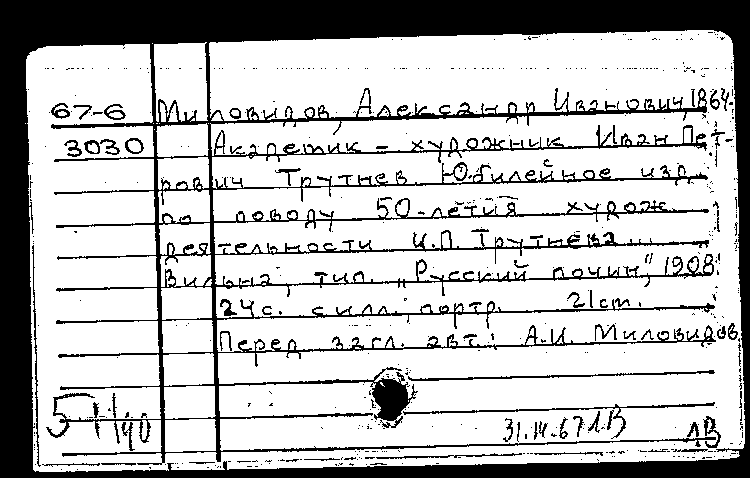 67-6 Миловидов, Александр Иванович, 1864-
3030 Академик - художник Иван Пет-
рович Трутнев. Юбилейное изд.
по поводу 50-летия худож.
деятельности И.П. Трутнева...
Вильна, тип. „Русский почин", 1908.
24с. с илл., портр. 21cm.
Перед загл. авт.: А.И. Миловидов